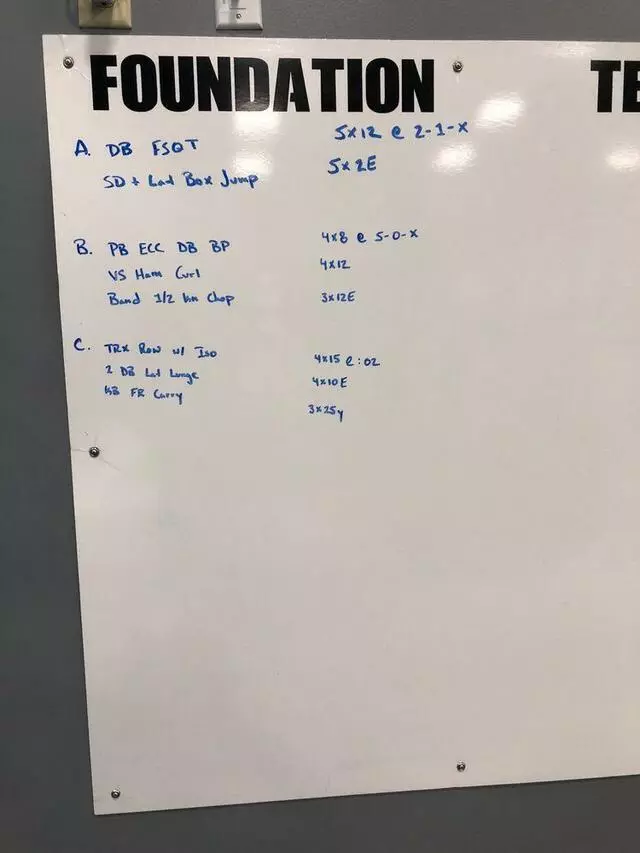 FOUNDATION TE
A. DB FSQT 5x12 @ 2-1-x
SD + Lat Box Jump 5x2E
B. PB ECC DB BP 4x8 @ 5-0-x
VS Ham Curl 4x12
Band 1/2 kn Chop 3x12E
C. TRX Row w/ Iso 4x15 @ :02
2 DB Lat Lunge 4x10E
KB FR Carry 3x25y